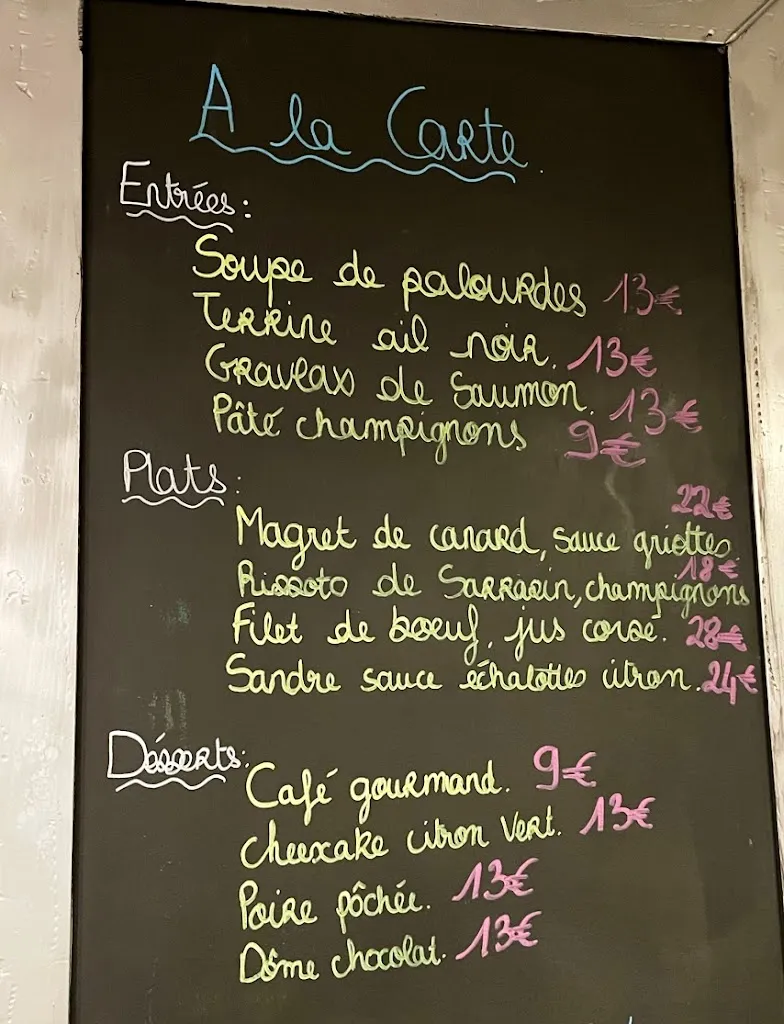 A la Carte.
Entrées:
Soupe de palourdes 13€
Terrine ail noir. 13€
Gravlax de Saumon. 13€
Pâté champignons 9€
Plats:
22€
Magret de canard, sauce griottes
18€
Rissoto de Sarrasin, champignons
Filet de boeuf, jus corsé. 28€
Sandre sauce échalottes citron. 24€
Désserts:
Café gourmand. 9€
Cheexake citron vert. 13€
Poire pôchée. 13€
Dôme chocolat. 13€